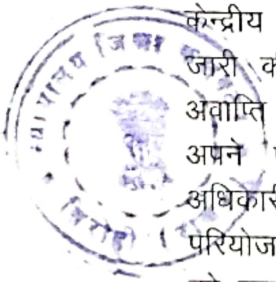 केन्द्रीय
जारी
अवाप्ति
अपने
अधिकारी
परियोज
न्यायालय जिला
सिरोही